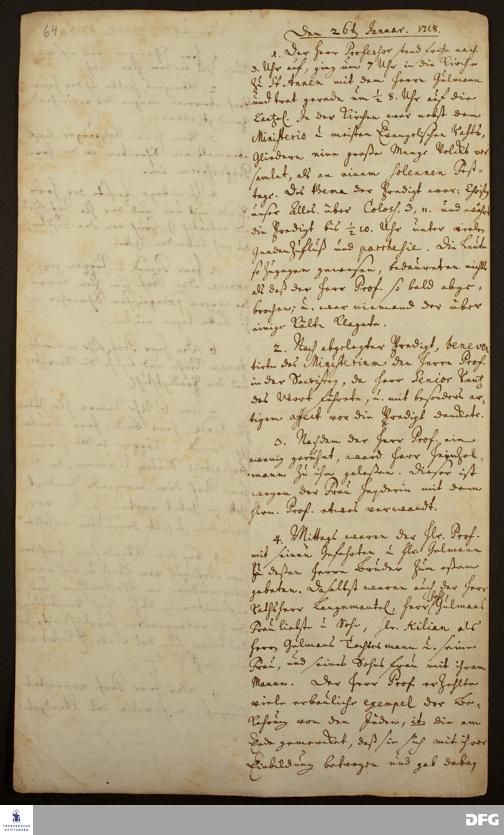 64
Den 26th Januar. 1718.
1. Der Herr Professor stand frühe nach
3. Uhr auf, ging um 7 Uhr in die Kirche
zu St Annen mit dem Herrn Gülmann
und trat gerade um ½ 8. Uhr auf die
Cantzel. In der Kirchen war nebst dem
Ministerio u meisten Evangelischen Raths-
Gliedern eine große Menge Volcks ver
samlet, als an einem solennen Fest-
tage. Das Thema der Predigt war: Christus
unser Alles. über Coloss. 3, 11. und währete
die Predigt bis ½ 10. Uhr unter vielem
Gnaden Zufluß und parrhesie. Die Leute
so zugegen gewesen, bedaureten nichts
als daß der Herr Prof. so bald abge-
brochen, u. war niemand der über
einige Kälte klagete.
2. Nach abgelegter Predigt, beneven
tirte das Ministerium den Herrn Prof.
in der Sacristey, da Herr Senior
das Wort führete, u. mit besonders ar-
tigem affect vor die Predigt danckete.
3. Nachdem der Herr Prof. ein
wenig geruhet, ward Herr
mann zu ihm gelaßen. Dieser ist
wegen der Frau mit dem
Hrn. Prof. etwas verwandt.
4. Mittags waren der Hr. Prof.
mit seinen Gefehrten u Hr. Gülmann
zu deßen Herrn Bruder zum eßen
gebeten. Daselbst waren auch der Herr
Rathsherr Langemantel, Herr Gülmans
Frau liebste u Sohn, Hr. Kilian als
Herrn Gülmans Tochtermann u. seine
Frau, und seines Sohns Frau mit ihrem
Manne. Der Herr Prof. erzehlte
viele erbauliche exempel der Be-
kehrung von den Juden, it: die am
Ende gemercket, daß sie sich mit ihrer
Einbildung betrogen und gab dabey
FRANCKESCHE
STIFTUNGEN
DFG